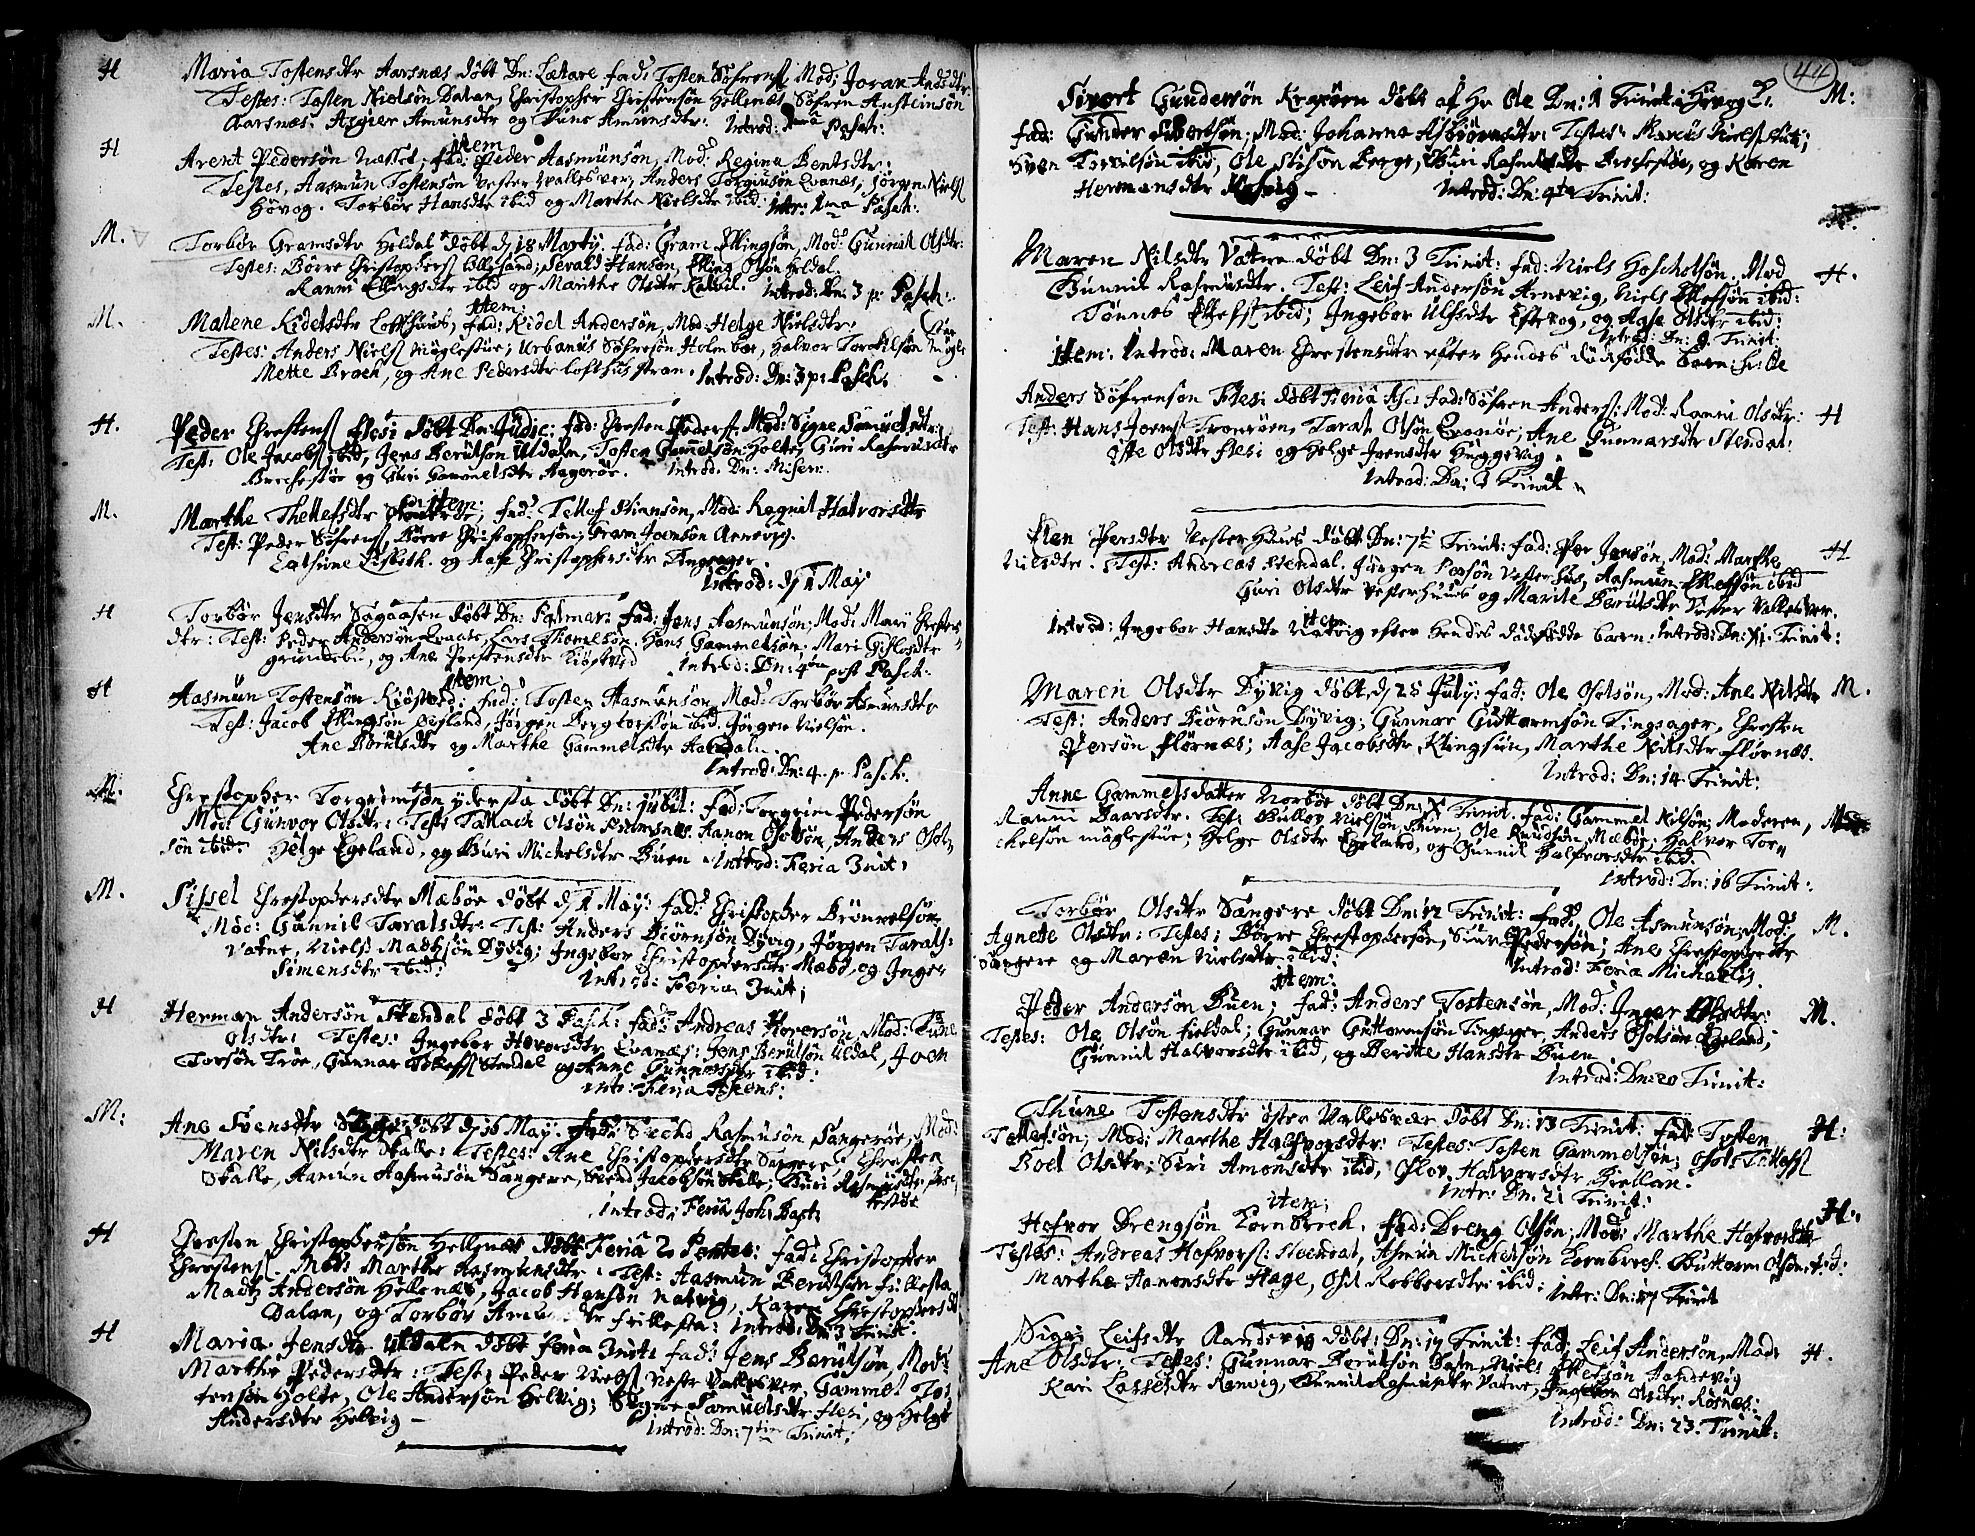 H Maria Tostensdtr Aarsnæs døbt Dn: Lætare fad: Tosten Søfrens Mod: Joran Andsdtr:
Testes: Tosten Nielsön Dalan, Christopher Christensön Hellenæs, Söfren Ansteinsön
Aarsnæs. Asgier Amunsdtr og Tune Amunsdtr. Introd: Pasch:
item
H Arent Pedersön Næsset; fad: Peder Aasmunsön, Mod: Regina Bentsdtr:
Testes, Aasmun Tostensön Vester Vallesver, Anders Torgiusön Evanæs, Jörgen Niels
Hövog. Torbör Hansdtr ibid og Marthe Nielsdtr ibid: Intr: 1ma Pasch:
M. Torbör Gramsdtr Heldal döbt d 18 Martij. fad: Gram Ellingsön, Mod: Gunnil Olsdtr:
Testes: Börre Christophers, Sevald Hansön, Elling Olsön Heldal.
Ranni Ellingsdtr ibid og Marithe Olsdtr Kalvil. Introd: Dn: 3 p: Pasch:
item
M. Malene Kidelsdtr Lofthuus, fad: Kidel Andersön, Mod: Helge Nielsdtr:
Testes: Anders Niels Möglestue; Urbanus Söfresön Holmbæ, Halvor Torckilsön Mögle
Mette Broen, og Ane Pedersdtr Lofthus stran. Introd: Dn: 3 p: Pasch.
H. Peder Chrestens Flesi döbt Dn: Judic: fad: Chresten Peders Mod: Signe Samuelsdtr:
Test: Ole Jacobs ibid, Jens Berulsön Uldalm, Tosten Gammelsön Holte, Guri Rasmusdtr
Brechestöe og Guri Gammelsdtr Aageröe. Introd: Dn: Miser:
item
M. Marthe Thellefsdtr fad: Tellef Stiansön, Mod: Regnil Halvorsdtr
Test: Peder Söfrens, Börre Christophersön, Gram Joensön Arnevig.
Cathrine Lisbeth. og Aase Christophersdtr Tingsager.
Introd: d 1 May
H Torbör Jensdtr Sagaasen döbt Dn: Palmar: fad: Jens Aasmunsön, Mod: Mari Chresten
dtr: Test: Peder Andersön Qvaase, Lars Thomesön. Hans Gammelsön. Mari Gislesdtr
grundesu, og Ane Chrestensdtr Kiöstved Introd: Dn: 4 post Pasch.
item
H Aasmun Tostensön Kiöstved; fad: Tosten Aasmunsön, Mod: Torbör Asmunsdtr
Test: Jacob Ellingsön Øigland; Jörgen Bergtorsön ibid. Jörgen Nielsön.
Ane Berulsdtr og Marthe Gammelsdtr Haldaln.
Introd: Dn: 4. p. Pasch.
M. Chrestopher Torgrimsön ydersta döbt Dn: Jubil: fad: Torgrim Pedersön
Mod: Gunvor Olsdtr: Test: Tallach Olsön Ranon Osolsön, Anders Osol-
sön ibid. Helge Egeland, og Guri Michelsdtr Buen. Introd: Feria 3nit:
M. Sissel Chrestophersdtr Mæböe döbt d 1 May: fad: Christopher Brönnelsön
Mod: Gunnil Taralsdtr. Test: Anders Biörnsön Dyvig, Jörgen Tarals:
Vatne, Niels Madtssön Dyvig; Ingebor Christophersdtr Mæbö, og Inger
Simensdtr ibid: Introd: Feria 3nit;
H Herman Andersön Stendal döbt 3 Pasch: fad: Andreas Hoversön, Mod: Tune
Olsdtr: Testes: Ingebor Hovorsdtr Evanæs: Jens Berulsön Uldal, Joen
Torsön Tröe, Gunnar Tolefs Stendal og Anne Gunnarsdtr ibid:
intr: Feria Ascens:
M: Ane Svensdtr döbt d 16 May. fad: Svend Rasmusön Sangeröe; Mod:
Maren Nilsdtr Skalle: Testes: Ane Christophersdtr Sangere, Chresten
Skalle, Aamun Aasmusön Sangere, Svend Jacobsön Skalle; Guri Rasmusdtr Bre-
kestöe
introd: Feria Joh: Bapt:
H Chresten Christophersön Hellenæs döbt Feria 2 Pentec: fad: Christopher
Chrestens, Mod: Marthe Aasmunsdtr. Test: Aasmun Berulsön Frillesta
Madtz Andersön Hellenæs, Jacob Hansön Natvig, Karen Chrestophersd
Dalan, og Torbör Frillesta: Introd: Dn: 3 Trinit:
H Maria Jensdtr Uldaln döbt Feria 3nit: fad: Jens Berulsön, Mod:
Marthe Pedersdtr: Test: Peder Niels Vester Vallesver, Gammel Tos
tensön Holte, Ole Andersön Helvig; Signe Samuelsdtr Flesi, og Helge
Andersdtr Helvig — Introd: Dn: 7 Trinit;
44
Sivort Gundersön döbt af Hr Ole Dn: 1 Trinit: Hövog M:
fad: Gunder Sivertsön; Mod: Johanna Asbiörnsdtr: Testes: Marcus
Sven Torvilsön ibid, Ole Stisön Berge, Guri Rasmusdtr Brechestöe, og Karen
Hermansdtr — Introd: Dn: 4ta Trinit:
Maren Nilsdtr Vatne döbt Dn: 3 Trinit: fad: Niels Goscholsön. Mod H.
Gunnil Rasmusdtr. Test: Leif Andersön Arnevig, Niels Ellefsön ibid:
Tönnes Ellefs ibid; Ingebor Ulfsdtr Estevog, og Aase Olsdtr ibid:
Introd: Dn: 9 Trinit:
Item: Introd: Maren Chrestensdtr efter hendes dödfödde barn: Hr Ole
Anders Söfrensön Flesi döbt Feria Asc: fad: Söfren Anders: Mod: Ranni Olsdtr: H
Test: Hans Joens Tronröen, Taral Olsön Evanöe; Ane Gunnarsdtr Stendal:
Ofte Olsdtr Flesi og Helge Joensdtr Huggevig.
Introd: Dn: 3 Trinit
Elen Persdtr Vesterhuus döbt Dn: 7 Trinit: fad: Per Jensön, Mod: Marthe H
Nielsdtr. Test: Andreas Stendal, Jörgen Vesterhus, Aasmun Ellefsön ibid
Guri Olsdtr Vesterhuus og Marite Berulsdtr Vester Vallesver.
item
Introd: Ingebor Hansdtr Natvig efter hendes dödfödde barn: Introd: Dn: XI. Trinit:
Maren Olsdtr Dyvig döbt d 25 July: fad: Ole Osolsön, Mod: Ane Nilsdtr M.
Test: Anders Biörnsön Dyvig; Gunnar Guttormsön Tingsager, Chresten
Persön Flörnæs; Aase Jacobsdtr Klingsun, Marthe Nilsdtr Flörnæs.
Introd: Dn: 14 Trinit:
Anne Gammelsdatter Norböe döbt Dn: X Trinit. fad: Gammel Nilsön; Moderen,
Ranni Baarsdtr. Test: Gullov Nielsön Buen, Ole Knudsön Mæböe; Halvor Tor-
ckelsön Möglestue; Helge Olsdtr Egeland, og Gunnil Halfvorsdtr ibid.
Introd: Dn: 16 Trinit:
Torbör Olsdtr Sangere döbt Dn: 12 Trinit: fad: Ole Asmunsön, Mod: M.
Agnete Olsdtr: Testes: Börre Chrestophersön, Siur Pedersön; Ane Chrestophersdtr
Sangere og Maren Nielsdtr ibid: Introd: Feria Michaelis.
item:
Peder Andersön Buen; fad: Anders Tostensön, Mod: Inger Olsdtr: M.
Testes: Ole Olsön Fieldal; Gunnar Guttormsön Tingsager, Anders Osolsön Egeland;
Gunnil Halvorsdtr ibid, og Berithe Hansdtr Buen
Introd: Dn: 20 Trinit:
Thune Tostensdtr öster Vallesver döbt Dn: 13 Trinit: fad: Tosten H:
Tellefsön; Mod: Marthe Halfvorsdtr: Testes: Tosten Gammelsön; Osol Tellefs
Boel Olsdtr; Siri Amonsdtr ibid, Oslov Halvorsdtr Brellan.
Intr: Dn: 21 Trinit:
item;
Hafvor Drengsön Kornbreck. fad: Dreng Olsön; Mod: Marthe Hafvorsdtr H.
Testes: Andreas Hafvors: Steendal, Asmun Michelsön Kornbrek. Guttorm Olsön ibid:
Marthe Hanonsdtr Hage, Osil Robbersdtr ibid: Intr: Dn: 17 Trinit
Signi Leifsdtr Randevig döbt: Dn: 17 Trinit: fad: Leif Andersön, Mod:
Ane Olsdtr: Testes: Gunnar Berulsön Dalm, Niels Ellefsön Aandevig H.
Kari Lassesdtr Ranvig, Gunnil Rasmusdtr Vatne, Ingebor Olsdtr Rosnæs:
Introd: Dn: 23. Trinit: